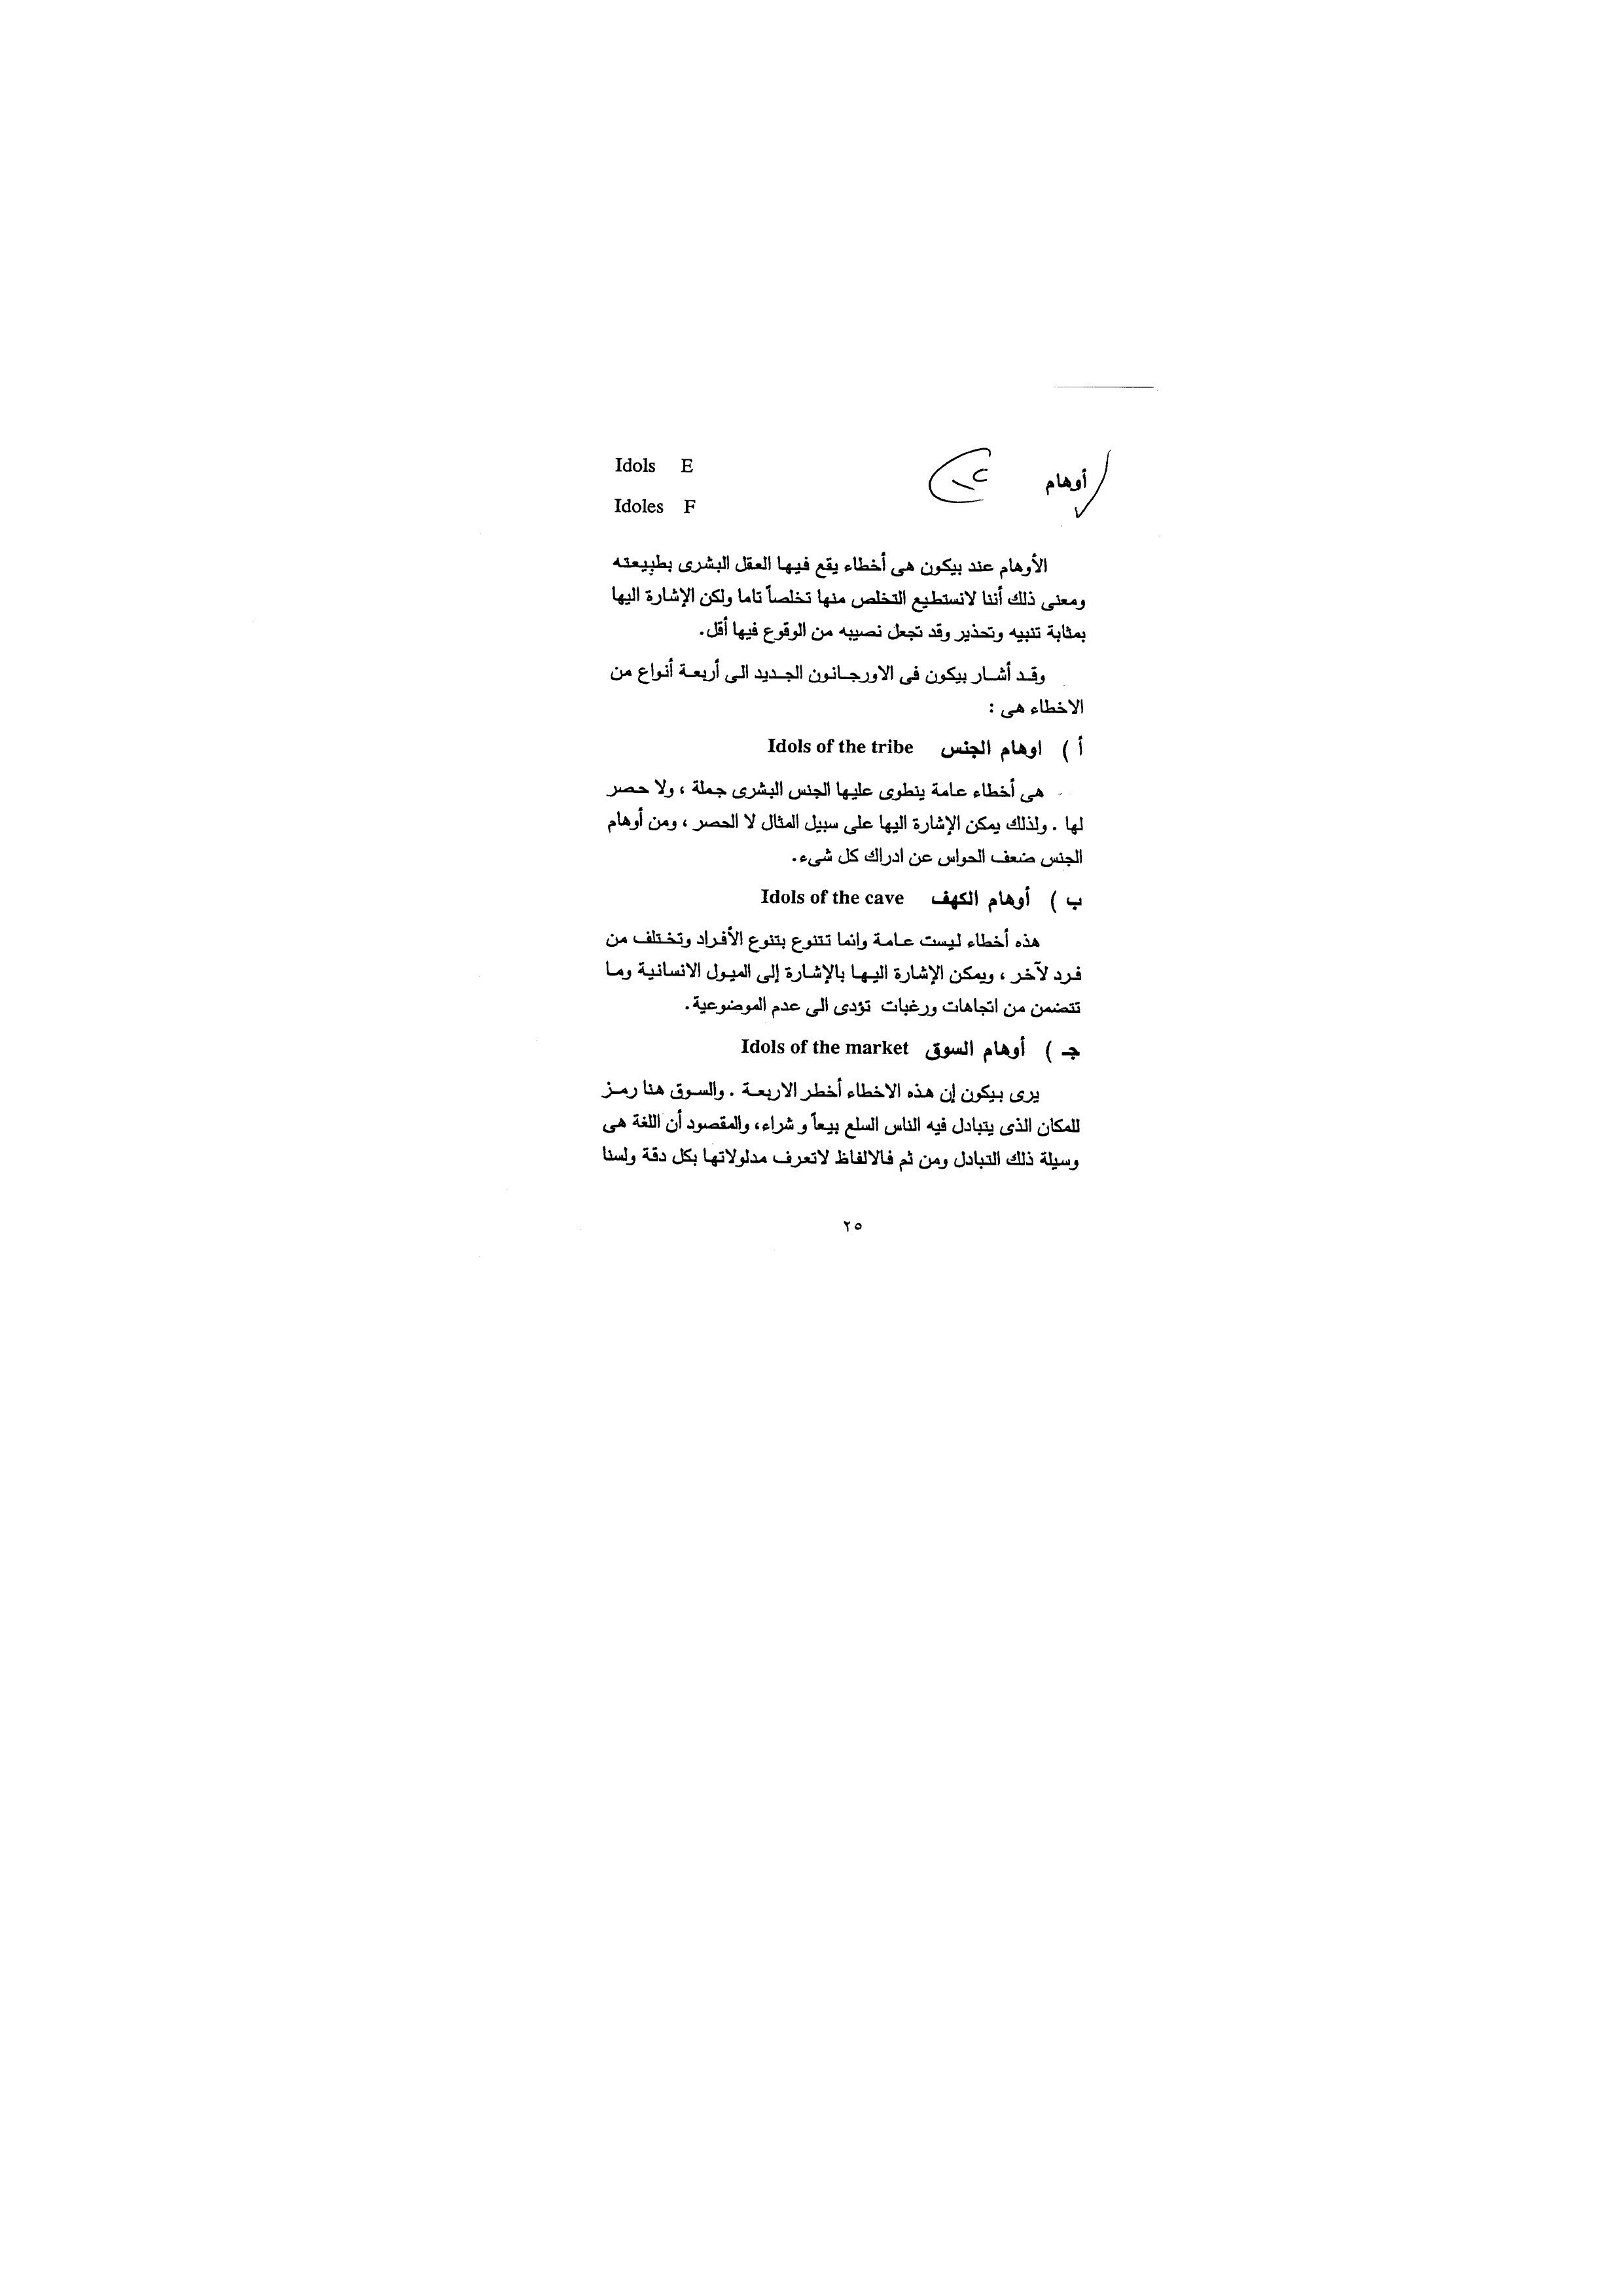 أوهام
Idols E
Idoles F
الأوهام عند بيكون هى أخطاء يقع فيها العقل البشرى بطبيعته
ومعنى ذلك أننا لانستطيع التخلص منها تخلصاً تاما ولكن الإشارة اليها
بمثابة تنبيه وتحذير وقد تجعل نصيبه من الوقوع فيها أقل.
وقد أشار بيكون فى الاورجانون الجديد الى أربعة أنواع من
الاخطاء هى :
أ ) اوهام الجنس Idols of the tribe
هى أخطاء عامة ينطوى عليها الجنس البشرى جملة ، ولا حصر
لها . ولذلك يمكن الإشارة اليها على سبيل المثال لا الحصر ، ومن أوهام
الجنس ضعف الحواس عن ادراك كل شىء.
ب ) أوهام الكهف Idols of the cave
هذه أخطاء ليست عامة وانما تتنوع بتنوع الأفراد وتختلف من
فرد لآخر ، ويمكن الإشارة اليها بالإشارة إلى الميول الانسانية وما
تتضمن من اتجاهات ورغبات تؤدى الى عدم الموضوعية.
جـ ) أوهام السوق Idols of the market
يرى بيكون إن هذه الاخطاء أخطر الاربعة . والسوق هنا رمز
للمكان الذى يتبادل فيه الناس السلع بيعاً و شراء، والمقصود أن اللغة هى
وسيلة ذلك التبادل ومن ثم فالالفاظ لاتعرف مدلولاتها بكل دقة ولسنا
٢٥